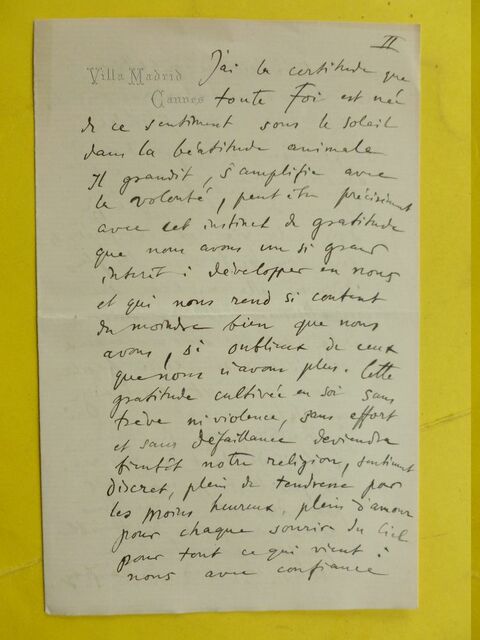 II
Villa Madrid
Cannes
J'ai la certitude que
toute Foi est née
de ce sentiment sous le soleil
dans la béatitude animale
Il grandit, s'amplifie avec
la volonté, peut être précisément
avec cet instinct de gratitude
que nous avons un si grand
intérêt à développer en nous
et qui nous rend si content
du moindre bien que nous
avons, si oublieux de ceux
que nous n'avons plus. Cette
gratitude cultivée en soi sans
trève ni violence, sans effort
et sans défaillance deviendra
bientôt notre religion, sentiment
discret, plein de tendresse pour
les moins heureux, plein d'amour
pour chaque sourire du Ciel
pour tout ce qui vient à
nous avec confiance